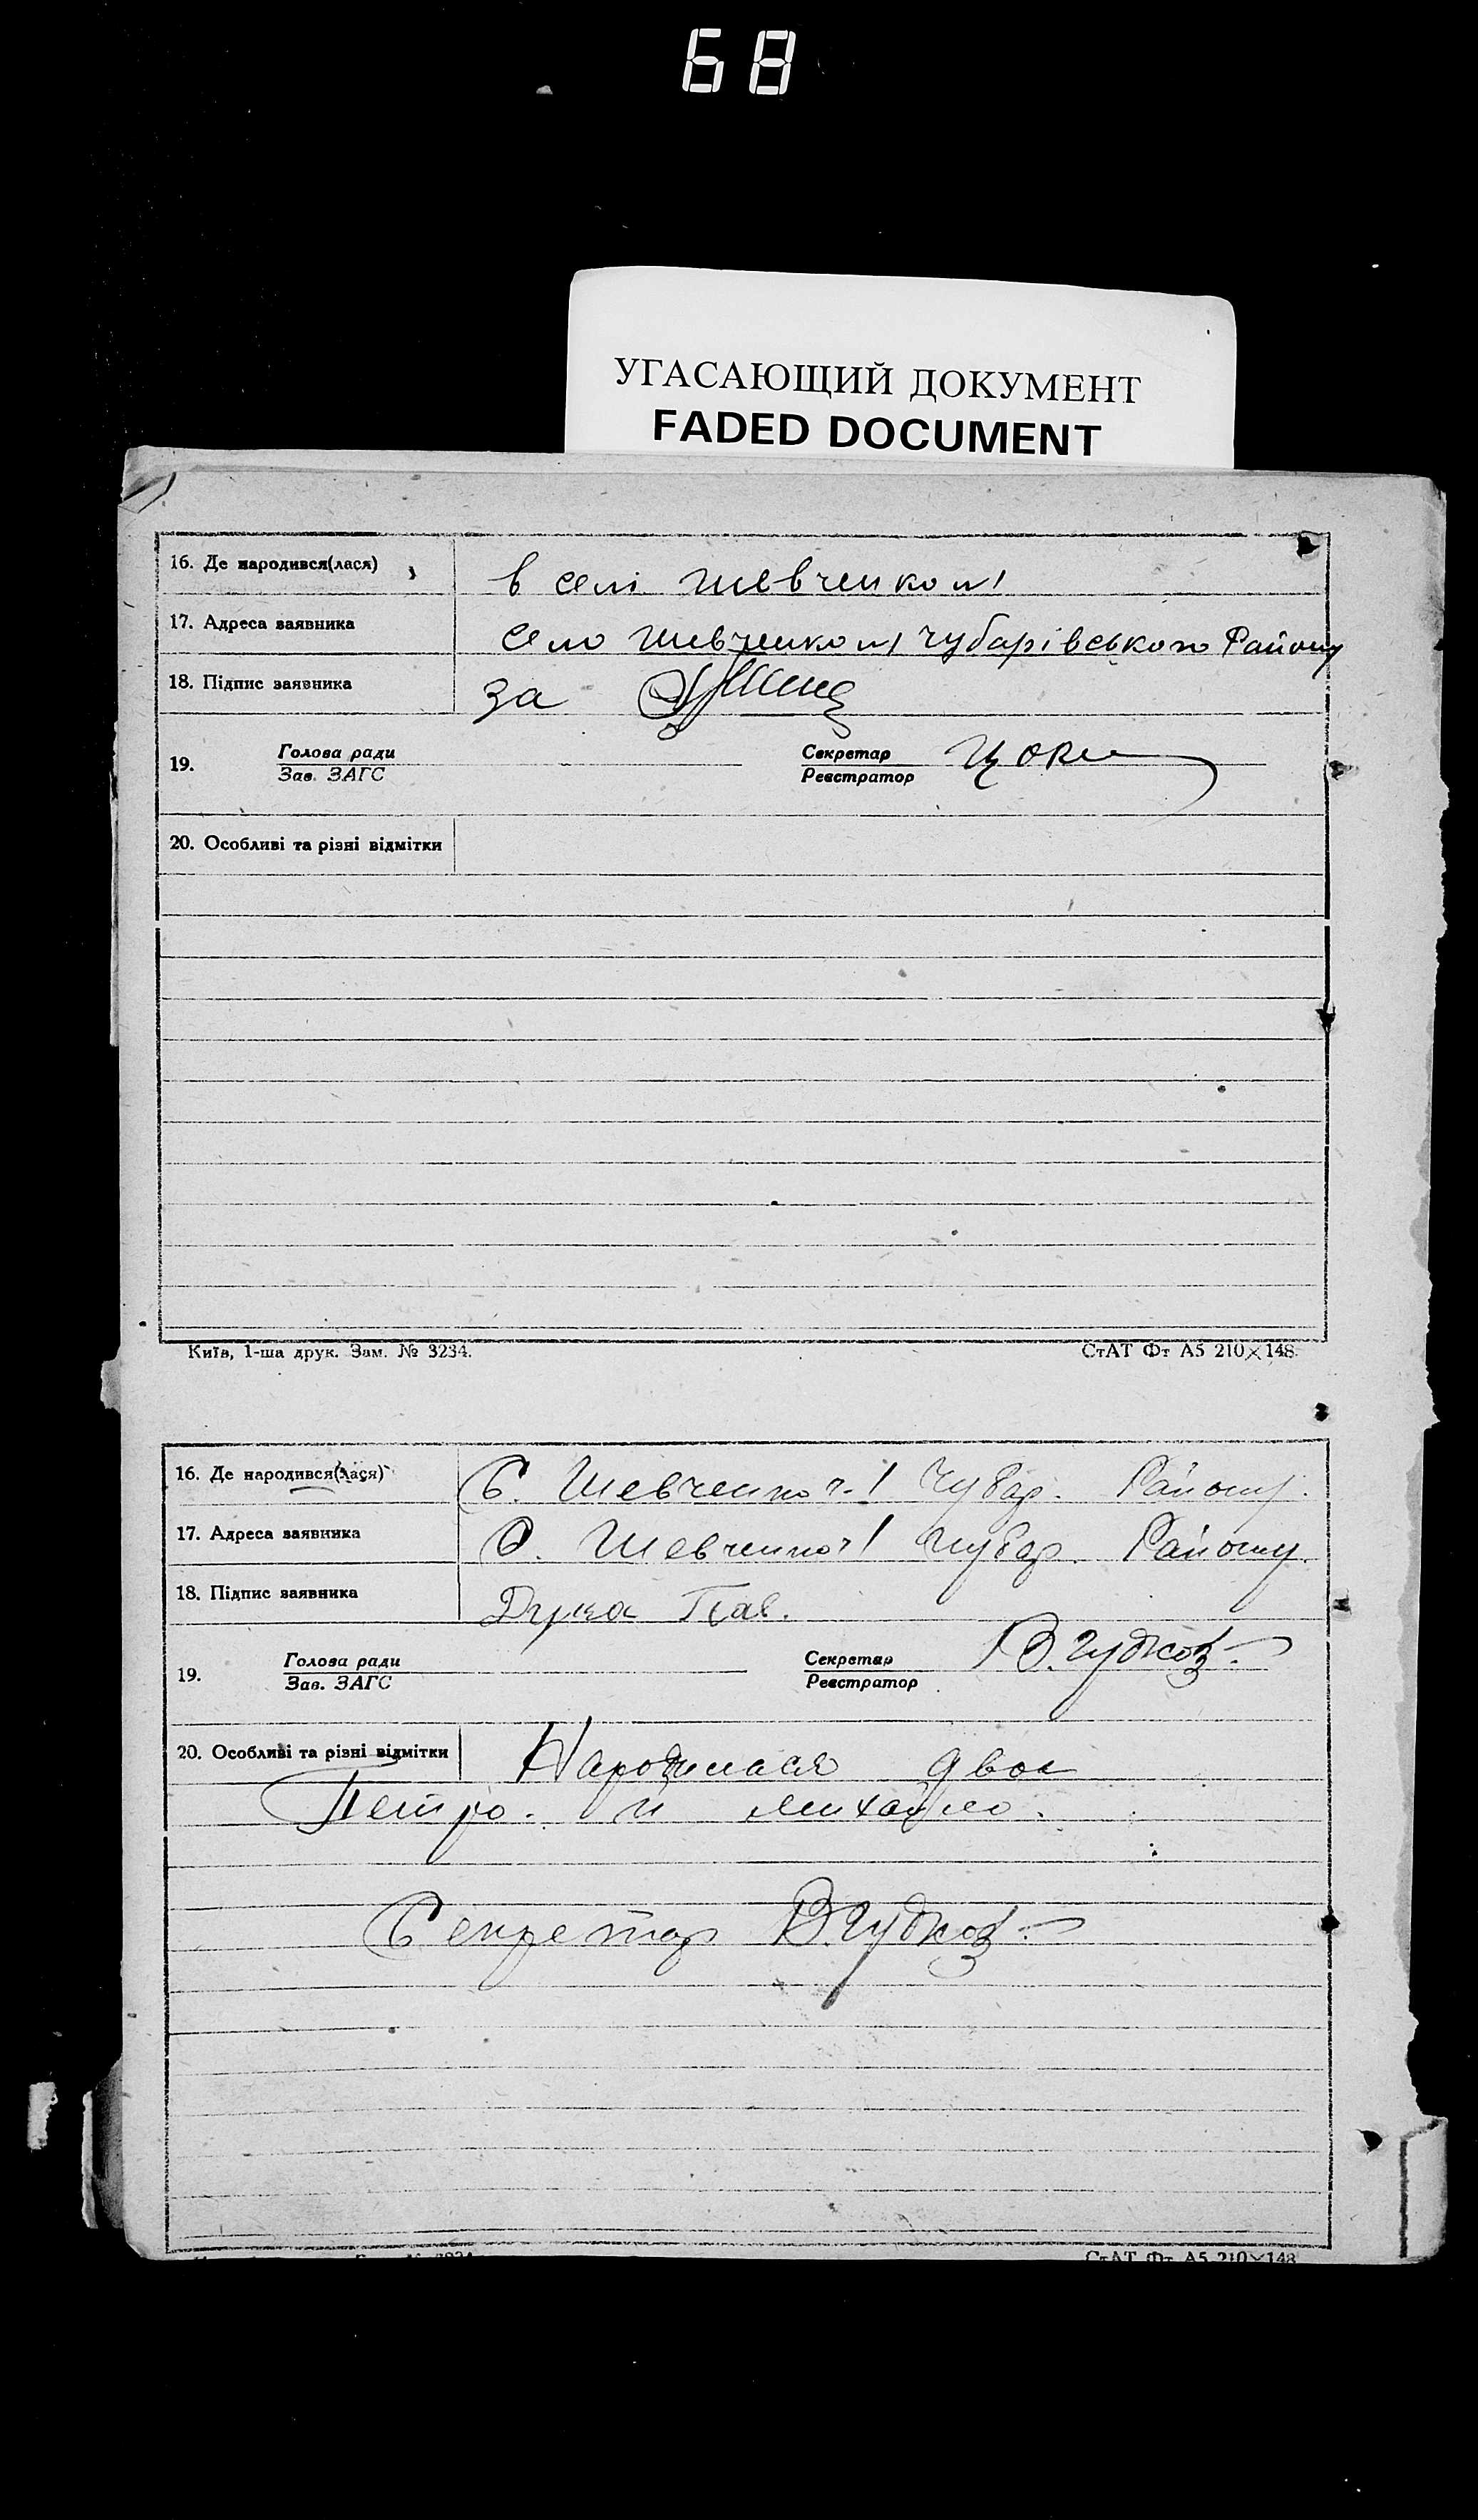 68
УГАСАЮЩИЙ ДОКУМЕНТ
FADED DOCUMENT
16. Де народився(лася)
в селі Шевченко №1
17. Адреса заявника
село Шевченко №1 Чубарівського Району
18. Підпис заявника
за
19. Голова ради
Зав. ЗАГС
Секретар
Реєстратор
20. Особливі та різні відмітки
Київ, 1-ша друк. Зам. № 3234.
СтАТ Фт А5 210×148.
16. Де народився(лася)
С. Шевченко №1 Чубар. Району.
17. Адреса заявника
С. Шевченко №1 Чубар. Району.
18. Підпис заявника
Пав.
19. Голова ради
Зав. ЗАГС
Секретар
Реєстратор
20. Особливі та різні відмітки
Народилася двоє
Петро. и михайло.
Секретар
СтАТ Фт А5 210×148